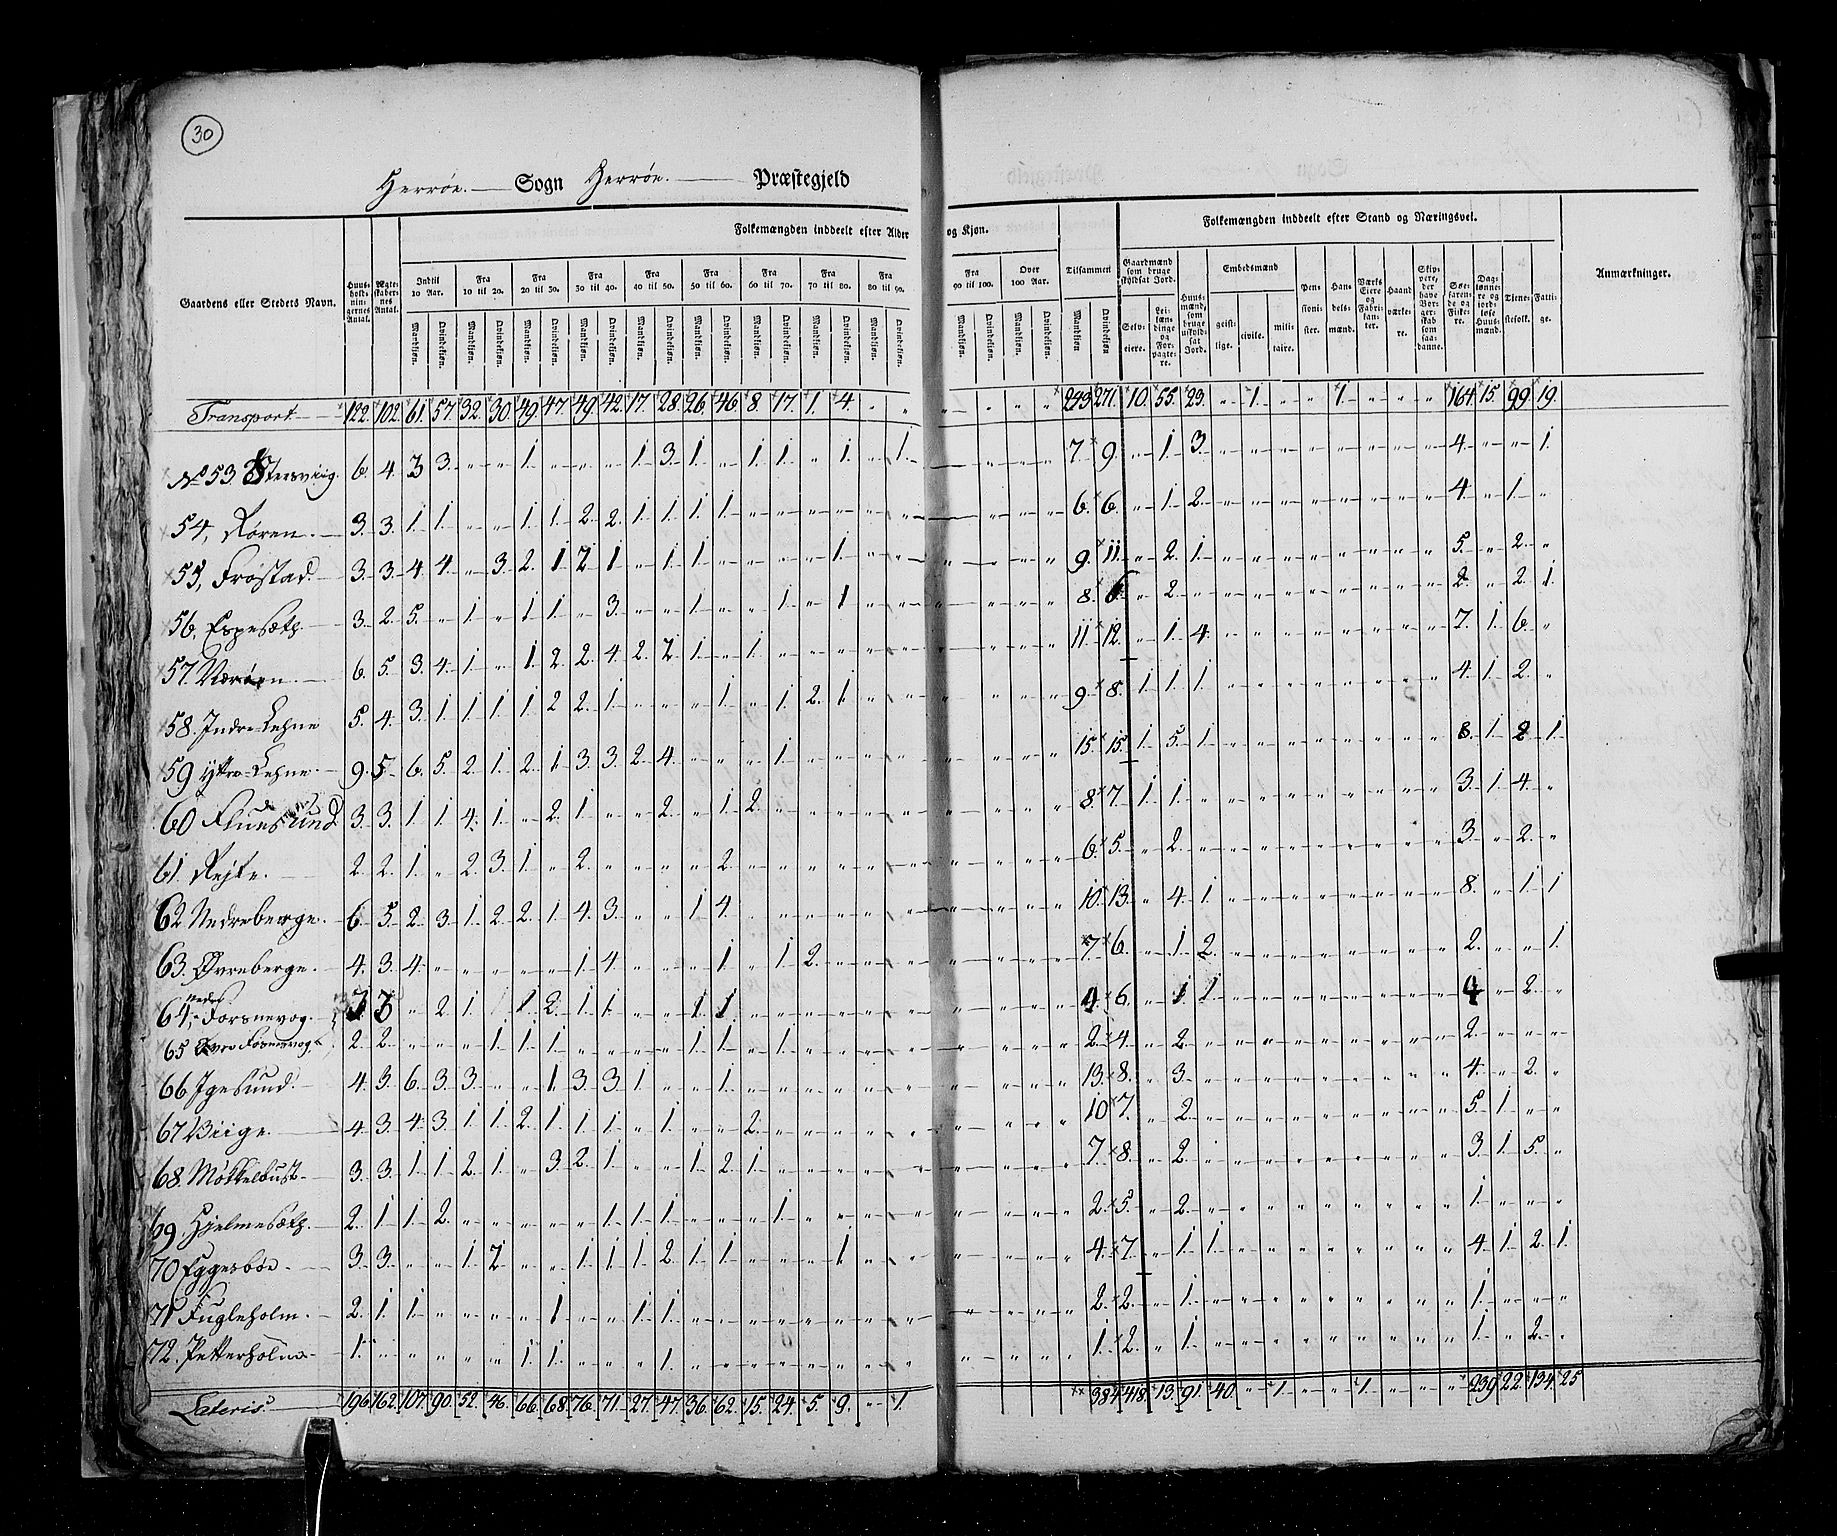 30
Herröe. Sogn Herröe. Præstegjeld
Folkemængden inddeelt efter Alder og Kjøn. Folkemængden inddeelt efter Stand og Næringsvei.
Gaardens eller Stedets Navn. Huusholdningernes Antal. Ægteskabernes Antal. Indtil 10 Aar. Fra 10 til 20. Fra 20 til 30. Fra 30 til 40. Fra 40 til 50. Fra 50 til 60. Fra 60 til 70. Fra 70 til 80. Fra 80 til 90. Fra 90 til 100. Over 100 Aar. Tilsammen Gaardmænd som bruge skyldsat Jord. Huusmænd, som bruge uskyldsat Jord. Embedsmænd Pensionister. Handelsmænd. Værks Eiere og Fabrikanter. Haandværkere. Skippere, der have Borgerskab som saadanne. Søefarende og Fiskere. Dagslønnere og jordløse Huusmænd. Tjenestefolk. Fattige. Anmærkninger.
Mandkjøn. Qvindekjøn. Selveiere. Leilændinge og Forpagtere. geistlige. civile. militaire.
Transport 122. 102. 61. 57. 32. 30. 49. 47. 49. 42. 17. 28. 26. 46. 8. 17. 1. 4. 243 271. 10. 55. 23. 1. 1. 164. 15. 99. 19.
No 53. Stersviig. 6. 4. 3 3. 1. 1. 3. 1. 1. 1. 1. 1. 7 9. 1. 3. 4. 1.
54, Røren. 3. 3. 1. 1. 1. 1. 2. 2. 1. 1. 1. 1. 6. 6. 1. 2. 4. 1.
55, Frøstad. 3. 3. 4. 4. 3. 2. 1 2 1. 1. 1. 1. 9. 11. 2. 1. 5. 2.
56, Espesæth. 3. 2. 5. 1. 1. 1. 3. 1. 1. 1. 8. 6. 2. 2. 2. 1.
57. Nærøen. 6. 5. 3. 4. 1. 1. 2. 2. 4. 2. 2. 1. 1. 11. 12. 1. 4. 7. 1. 6.
58. Indre Lehne 5. 4. 3. 1. 1. 1. 1. 2 2. 1. 1. 1. 2. 1. 9. 8. 1. 1. 1. 4. 1. 2.
59 Yttre Lehne. 9. 5. 6. 5. 2. 1. 2. 1. 3. 3. 2. 4. 1. 15. 15. 1. 5. 1. 8. 1. 2 1.
60 Fluesund. 3. 3. 1. 1. 4. 1. 2. 1. 2. 1. 2. 8. 7. 1. 1. 3. 1. 4.
61. Rejte. 2. 2. 1. 2. 3. 1. 2. 2. 6. 5. 2. 3. 2.
62 Nedreberge. 6. 5. 2. 3. 1. 2. 2. 1. 4. 3. 1. 4. 10. 13. 4. 1. 8. 1. 1
63. Øvreberge. 4. 3. 4. 1. 4. 1. 1. 2. 7. 6. 1. 2. 2. 1.
64, Nedre Forsnevog. 3 3 2. 1. 1. 2. 1. 1. 1. 1. 4. 6. 1. 1. 4 2.
65 Øvre Forsnevog. 2. 2. 1. 1. 1. 1. 1. 1. 2. 4. 2. 2.
66 Igesund. 4. 3. 6. 3. 3. 1. 3. 3. 1. 1. 13. 8. 3. 4. 2.
67 Viige. 4. 3. 4. 3. 1. 1. 2. 1. 1. 1. 1. 2. 10 7. 2. 5. 1.
68. Møkkelbust. 3. 3. 1. 1. 2. 1. 3. 2. 1. 1. 2. 1. 7. 8. 2. 3. 1. 5.
69. Hjelmesæth. 2. 1. 1. 2. 1. 1. 1. 1. 2. 5. 2. 1.
70 Eggesböe. 3. 3. 1. 2. 1. 1. 1. 2. 1. 1. 1. 4. 7. 1. 1. 4. 1. 2. 1.
71 Fugleholm. 2. 1. 1. 1. 1. 1. 2. 2. 1. 1.
72. Petterholm 1. 1. 1. 1. 1. 2. 1. 1. 2.
Lateris. 196. 162. 107. 90. 52. 46. 66. 68. 76. 71. 27. 47. 36. 62. 15. 24. 5. 9. 1. 384 418. 13. 91. 40. 1. 1. 239. 22. 134. 25